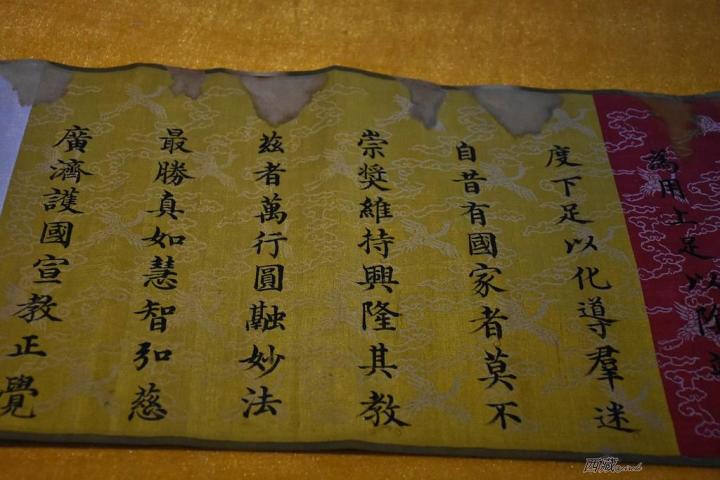 為用上足以陰
度下足以化導羣迷
自昔有國家者莫不
崇奬維持興隆其教
玆者萬行圓融妙法
最勝真如慧智弘慈
廣濟護國宣教正覺
西藏